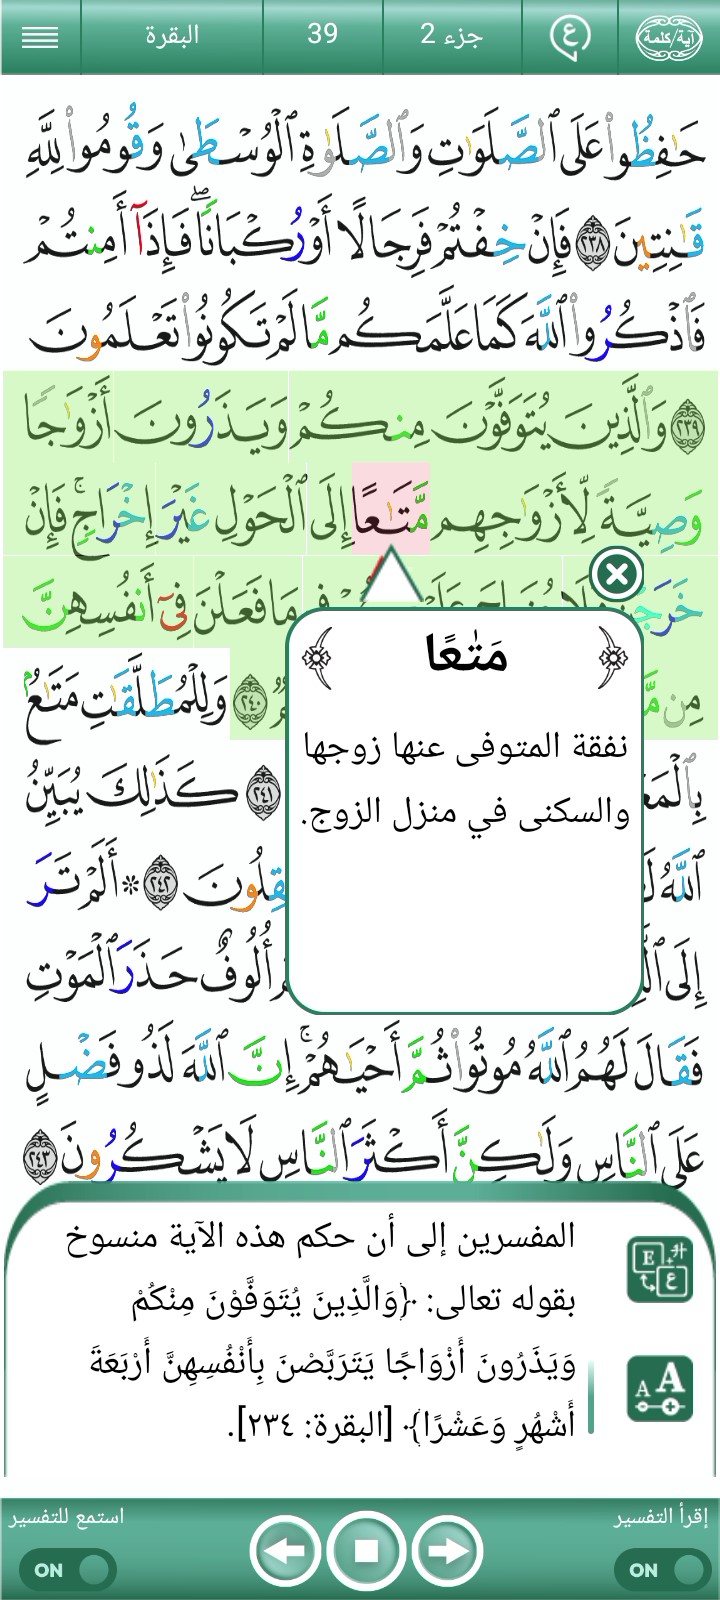 آية/كلمة
ع
جزء 2
39
البقرة
حَٰفِظُوا۟ عَلَى ٱلصَّلَوَٰتِ وَٱلصَّلَوٰةِ ٱلْوُسْطَىٰ وَقُومُوا۟ لِلَّهِ
قَٰنِتِينَ ٢٣٨ فَإِنْ خِفْتُمْ فَرِجَالًا أَوْ رُكْبَانًا ۖ فَإِذَآ أَمِنتُمْ
فَٱذْكُرُوا۟ ٱللَّهَ كَمَا عَلَّمَكُم مَّا لَمْ تَكُونُوا۟ تَعْلَمُونَ
٢٣٩ وَٱلَّذِينَ يُتَوَفَّوْنَ مِنكُمْ وَيَذَرُونَ أَزْوَٰجًا
وَصِيَّةً لِّأَزْوَٰجِهِم مَّتَٰعًا إِلَى ٱلْحَوْلِ غَيْرَ إِخْرَاجٍ ۚ فَإِنْ
خَرَجْنَ مَا فَعَلْنَ فِىٓ أَنفُسِهِنَّ
مِن ٢٤٠ وَلِلْمُطَلَّقَٰتِ مَتَٰعٌۢ
٢٤١ كَذَٰلِكَ يُبَيِّنُ
ٱللَّهُ ٢٤٢ ۞ أَلَمْ تَرَ
إِلَى أُلُوفٌ حَذَرَ ٱلْمَوْتِ
فَقَالَ لَهُمُ ٱللَّهُ مُوتُوا۟ ثُمَّ أَحْيَٰهُمْ ۚ إِنَّ ٱللَّهَ لَذُو فَضْلٍ
عَلَى ٱلنَّاسِ وَلَٰكِنَّ أَكْثَرَ ٱلنَّاسِ لَا يَشْكُرُونَ ٢٤٣
مَتَٰعًا
نفقة المتوفى عنها زوجها
والسكنى في منزل الزوج.
المفسرين إلى أن حكم هذه الآية منسوخ
بقوله تعالى: ﴿وَالَّذِينَ يُتَوَفَّوْنَ مِنْكُمْ
وَيَذَرُونَ أَزْوَاجًا يَتَرَبَّصْنَ بِأَنْفُسِهِنَّ أَرْبَعَةَ
أَشْهُرٍ وَعَشْرًا﴾ [البقرة: ٢٣٤].
E ع
A A
إقرأ التفسير
استمع للتفسير
ON
ON